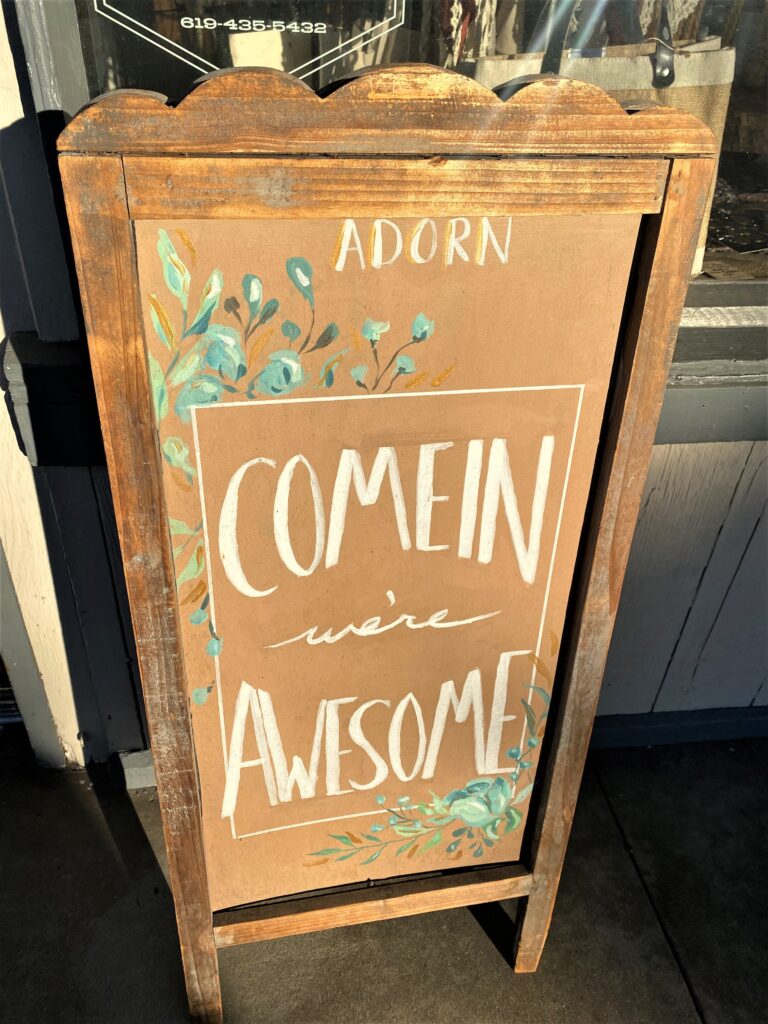 619-435-5432
ADORN
COME IN
we're
AWESOME